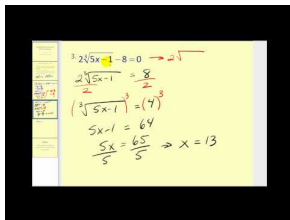 3. 2∛5x−1 − 8 = 0 → 2√
2∛5x−1 = 8
2 2
(∛5x−1)³ = (4)³
5x−1 = 64
5x = 65
5 5 → x = 13